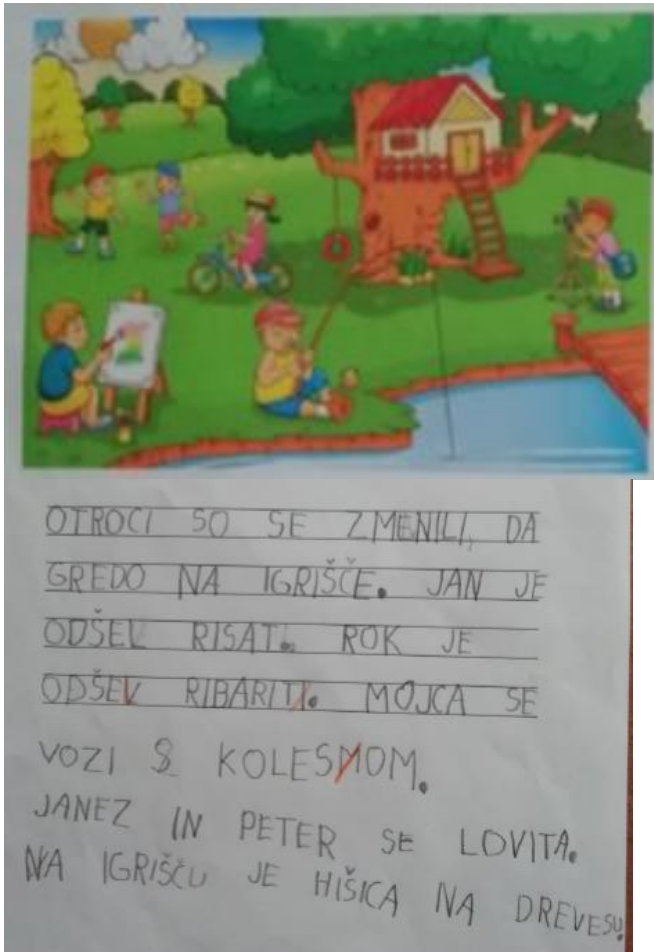 OTROCI SO SE ZMENILI, DA
GREDO NA IGRIŠČE. JAN JE
ODŠEL RISAT. ROK JE
ODŠEV RIBARITI. MOJCA SE
VOZI S KOLESMOM.
JANEZ IN PETER SE LOVITA.
NA IGRIŠČU JE HIŠICA NA DREVESU.